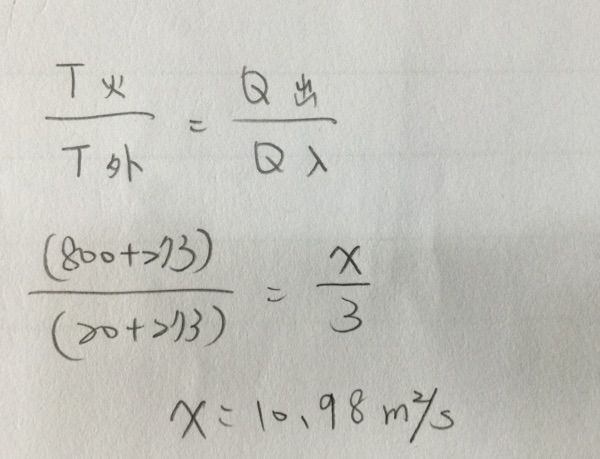 T火 / T外 = Q出 / Q入
(800+273) / (20+273) = x / 3
x = 10.98 m²/s